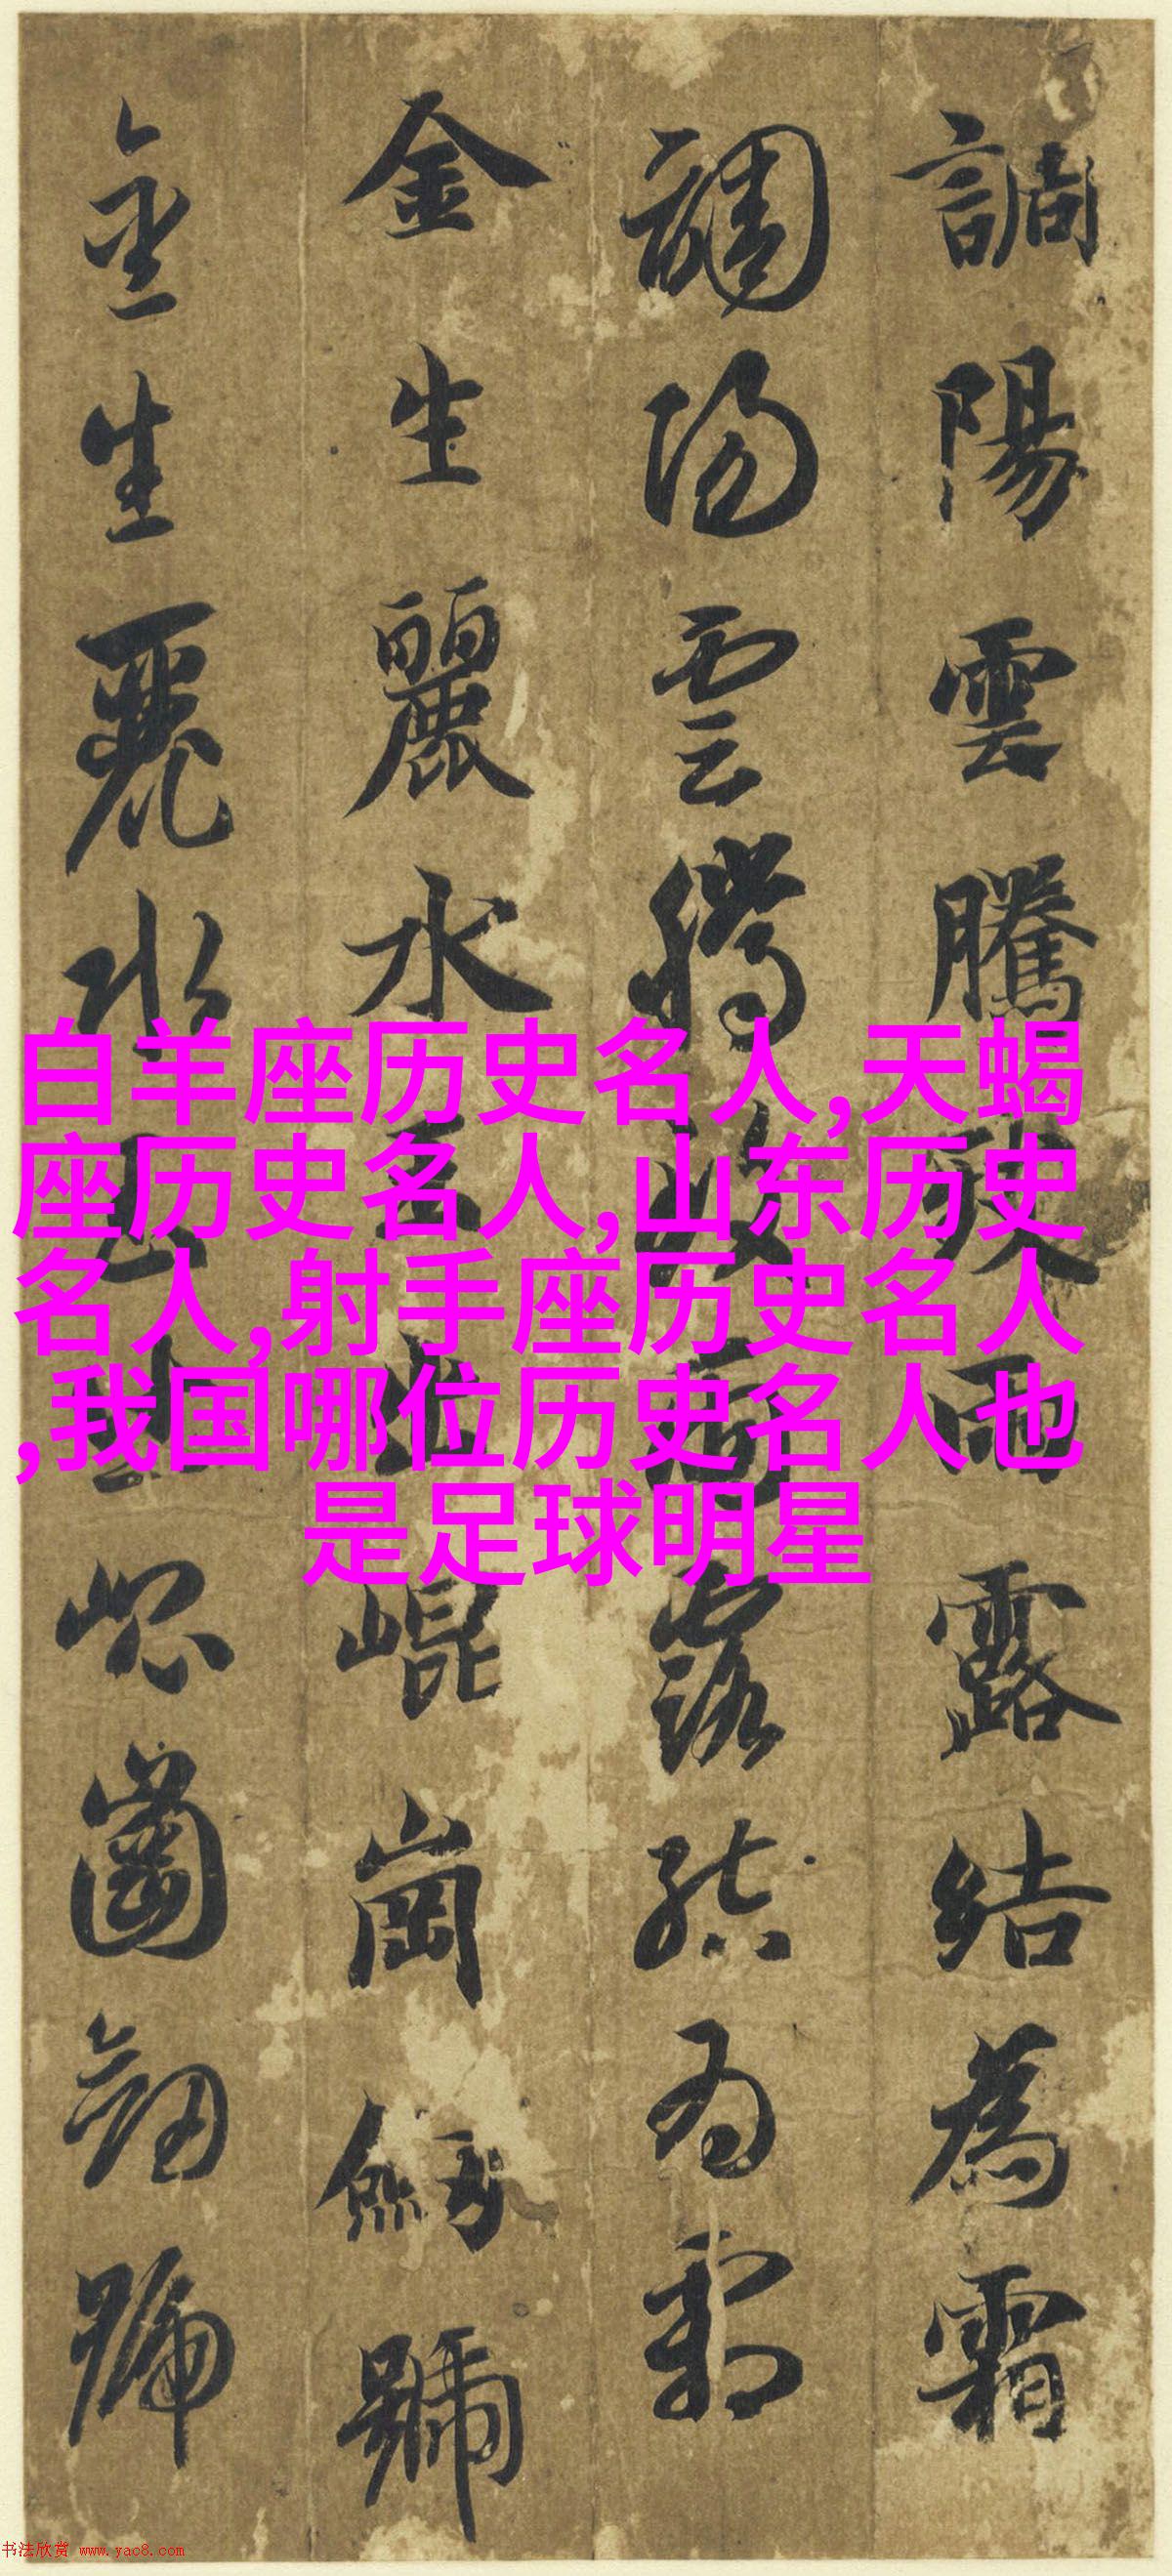 調陽雲騰致雨露結為霜
調陽雲騰致雨露結為霜
金生麗水玉出崐崗劔號
金生麗水玉出崐崗劔號
白羊座历史名人,天蝎
座历史名人,山东历史
名人,射手座历史名人
,我国哪位历史名人也
是足球明星
书法欣赏 www.yac8.com